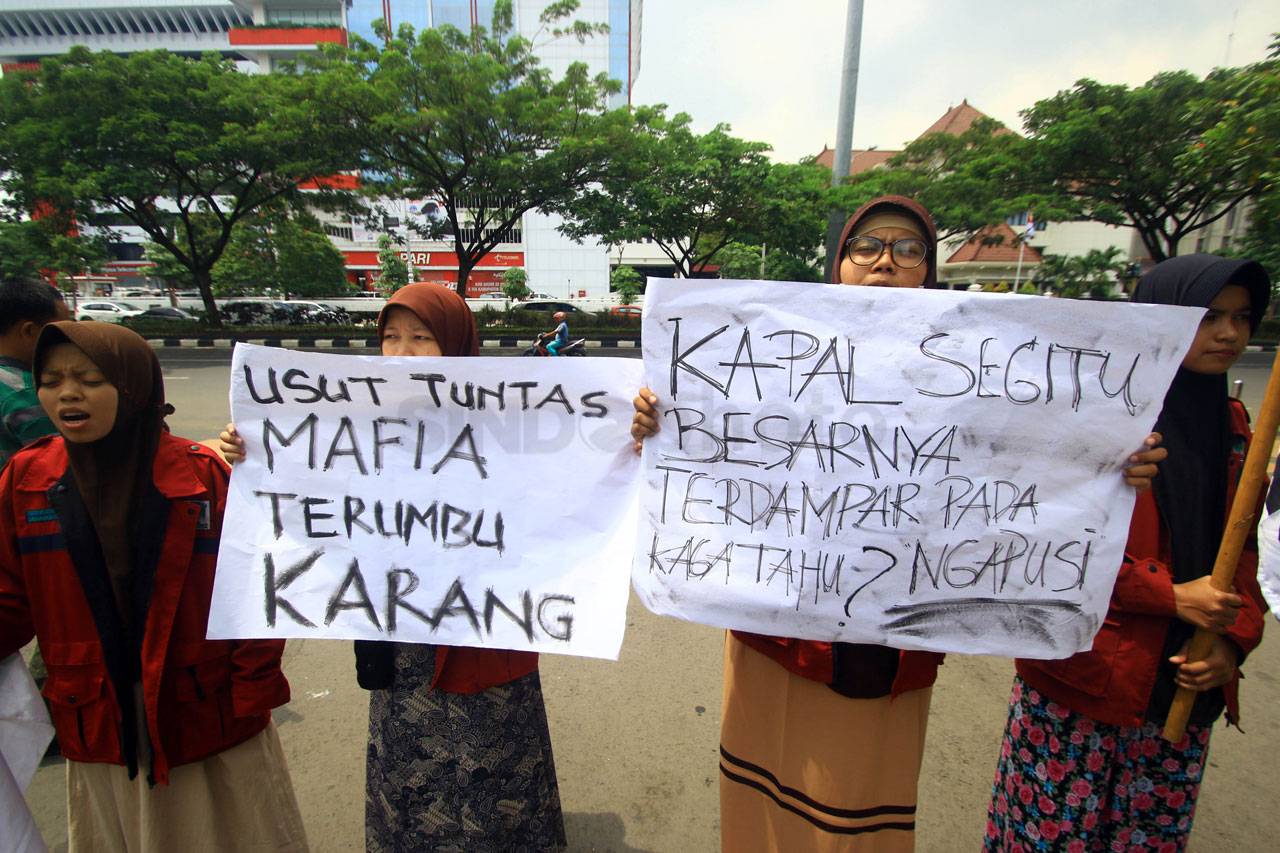 USUT TUNTAS
MAFIA
TERUMBU
KARANG
KAPAL SEGITU
BESARNYA
TERDAMPAR PADA
KAGA TAHU? "NGAPUSI"
SINDOphoto
PARI